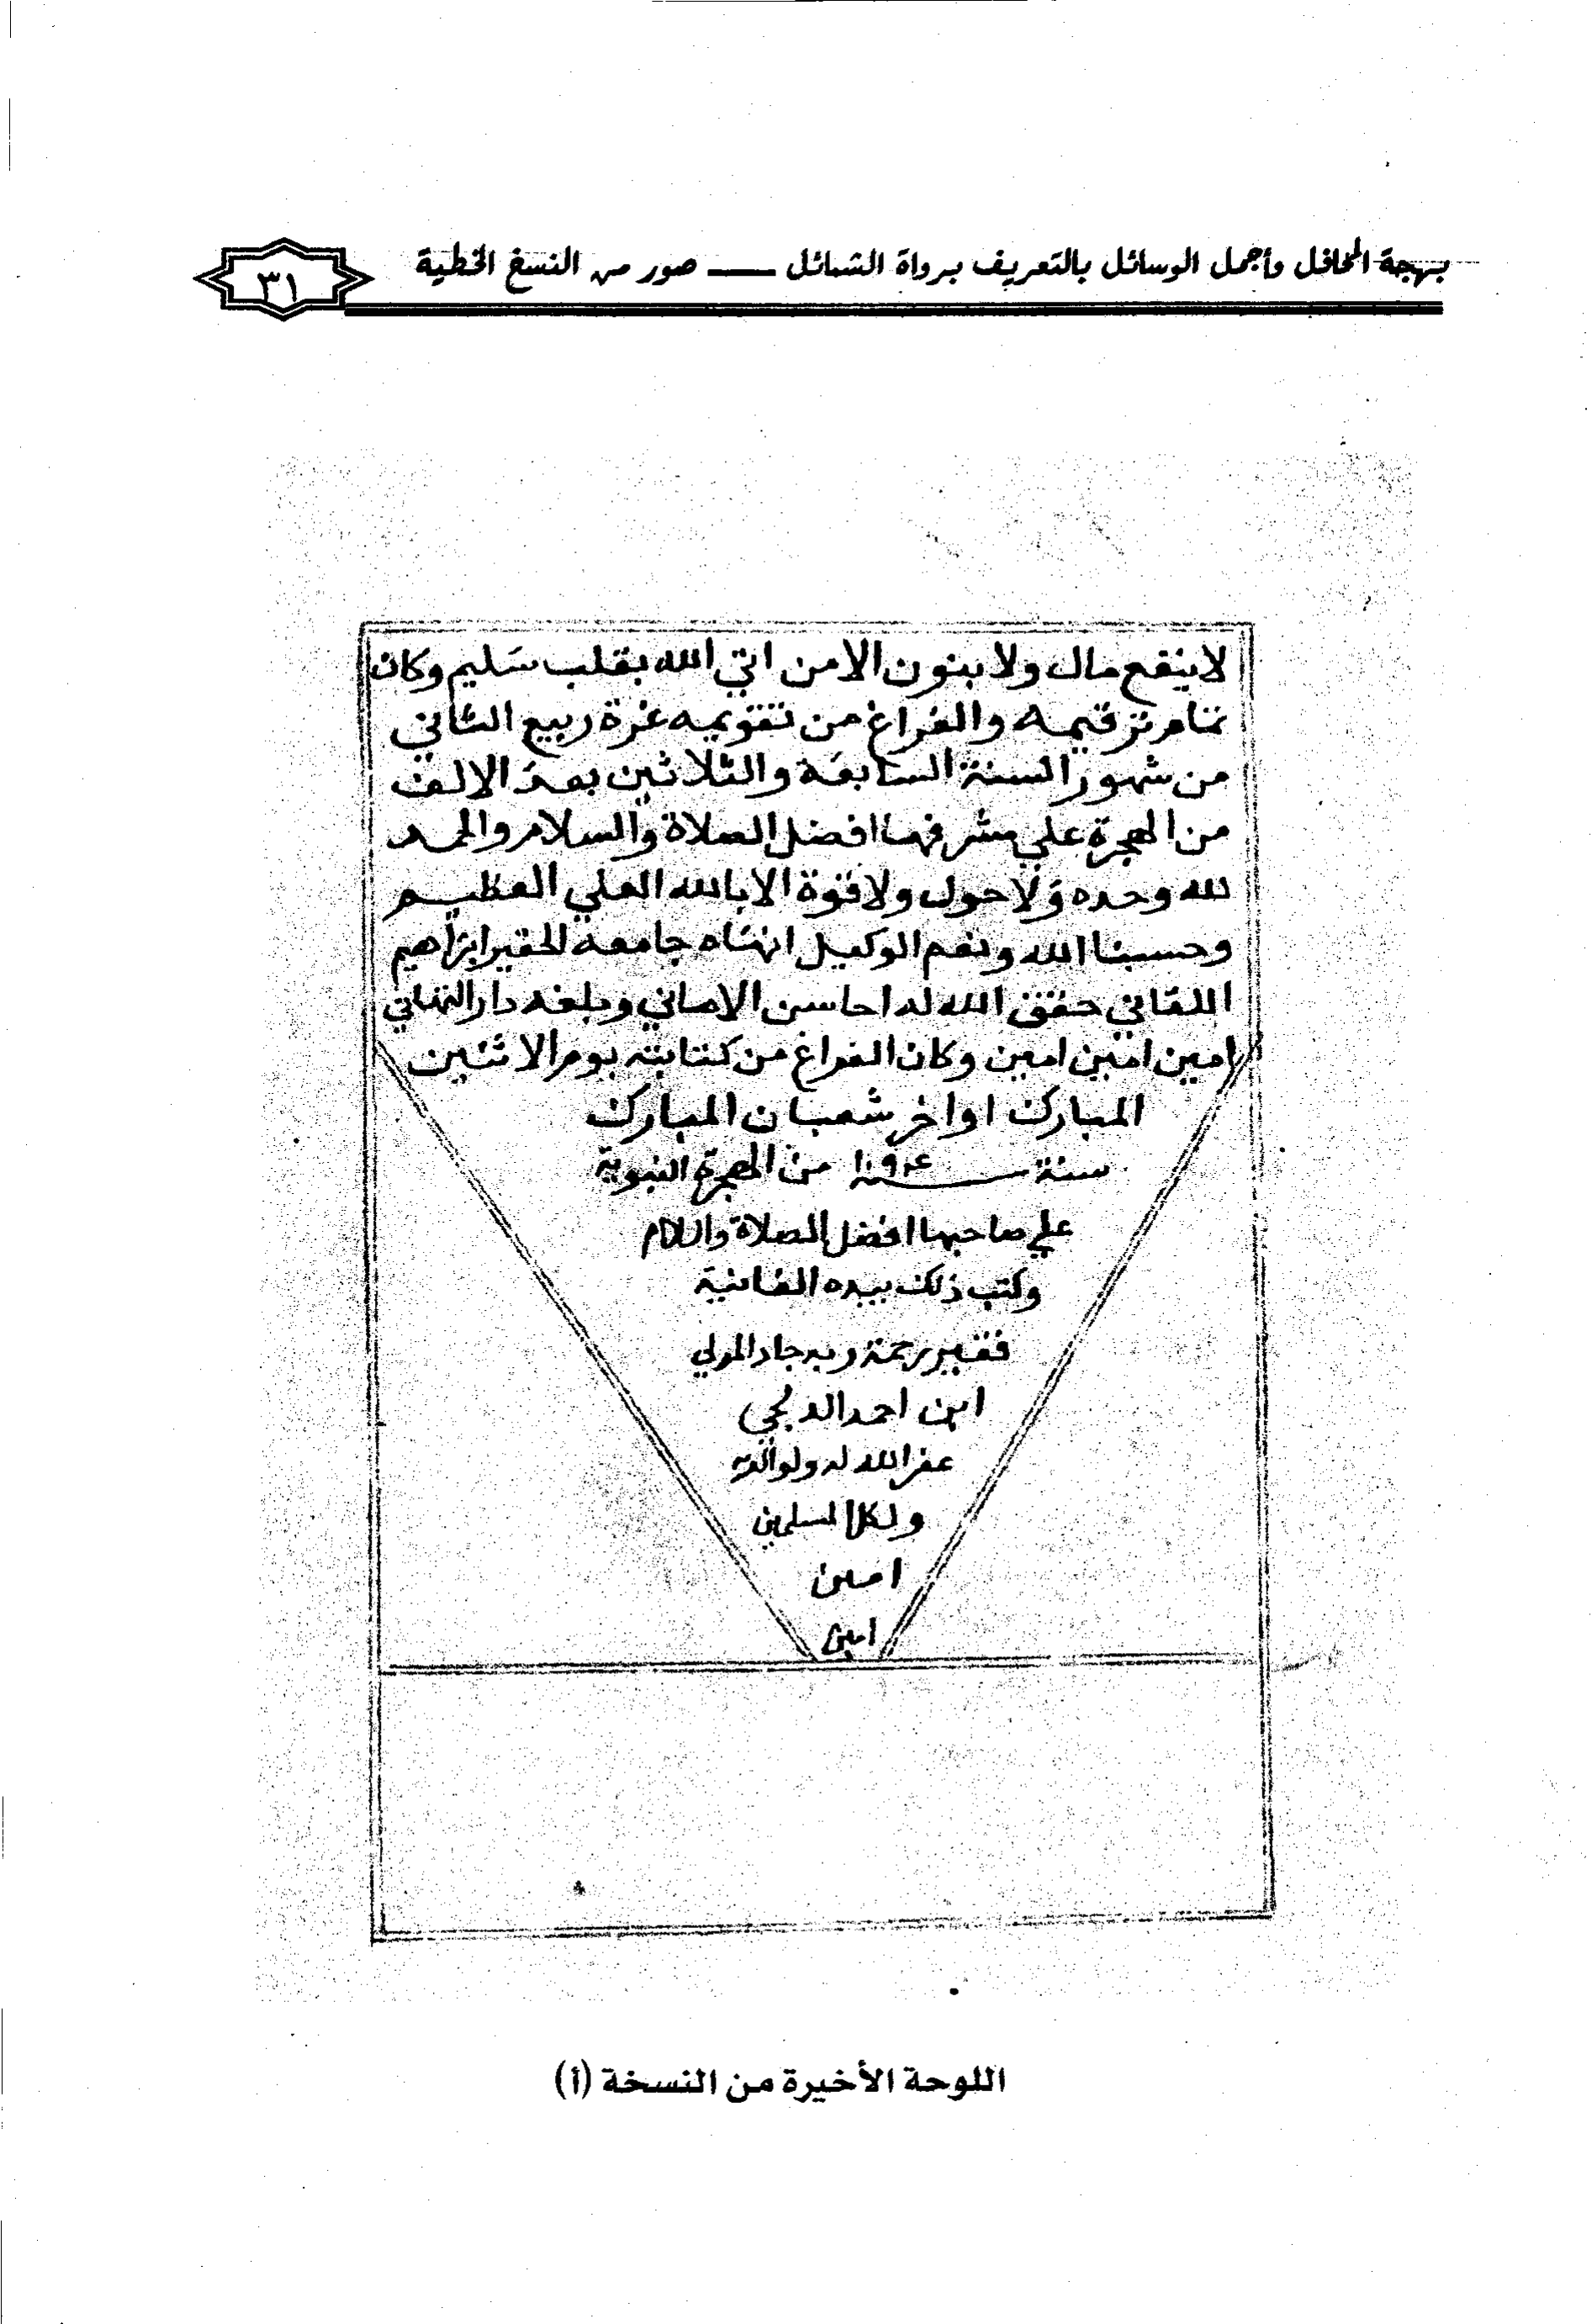 بهجة المحافل وأجمل الوسائل بالتعريف برواة الشمائل ـــــ صور من النسخ الخطية
٣١
لا ينفع مال ولا بنون الا من اتي الله بقلب سليم وكان
تمام ترقيمه والفراغ من تقويمه غرة ربيع الثاني
من شهور السنة السابعة والثلاثين بعد الالف
من الهجرة علي مشرفها افضل الصلاة والسلام والحمد
لله وحده ولا حول ولا قوة الا بالله العلي العظيم
وحسبنا الله ونعم الوكيل انهاه جامعه الحقير ابراهيم
اللقاني حقق الله له احاسن الاماني وبلغه دار التهاني
امين امين امين وكان الفراغ من كتابته يوم الاثنين
المبارك اواخر شعبان المبارك
سنة من الهجرة النبوية
علي صاحبها افضل الصلاة واللام
وكتب ذلك بيده الفانية
فقير رحمة ربه جاد المولي
ابن احمد الدلجي
غفر الله له ولوالديه
ولكل المسلمين
امين
امين
اللوحة الأخيرة من النسخة (أ)